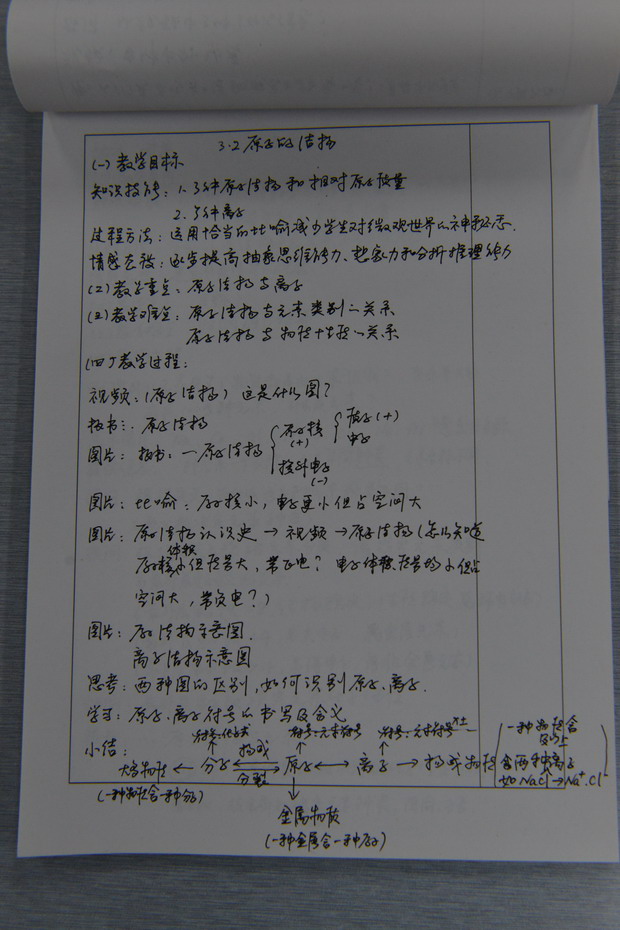 3.2 原子的结构
(一) 教学目标
知识技能: 1. 了解原子结构和相对原子质量
2. 了解离子
过程方法: 运用恰当的比喻减少学生对微观世界的神秘感.
情感态度: 逐步提高抽象思维能力、想象力和分析推理能力
(二) 教学重点: 原子结构与离子
(三) 教学难点: 原子结构与元素类别的关系
原子结构与物质性质的关系
(四) 教学过程:
视频: (原子结构) 这是什么图?
板书: 原子结构
图片: 板书: 一原子结构 { 原子核 (+) { 质子(+)
中子
核外电子 (-)
图片: 比喻: 原子核小, 电子更小但占空间大
图片: 原子结构认识史 → 视频 → 原子结构 (怎么知道
原子核体积小但质量大, 带正电? 电子体积质量均小但占
空间大, 带负电?)
图片: 原子结构示意图.
离子结构示意图
思考: 两种图的区别, 如何识别原子、离子.
学习: 原子、离子符号的书写及含义
小结:
符号:化学式 符号:元素符号 符号:元素符号
大多物质 ← 分子 构成 分裂 原子 ↔ 离子 → 构成物质 含两种离子
(一种物质含一种分子)
(一种物质含
及以上
如NaCl → Na⁺.Cl⁻
金属物质
(一种金属含一种原子)